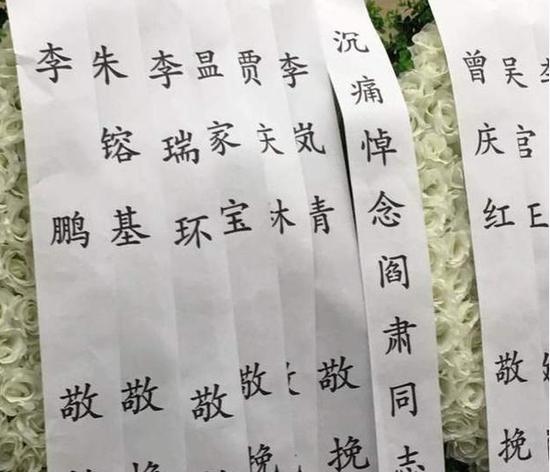 李鹏敬
朱镕基敬挽
李瑞环敬挽
家宝敬挽
贾
李岚敬挽
沉痛悼念阎肃同志
曾庆红敬挽
吴